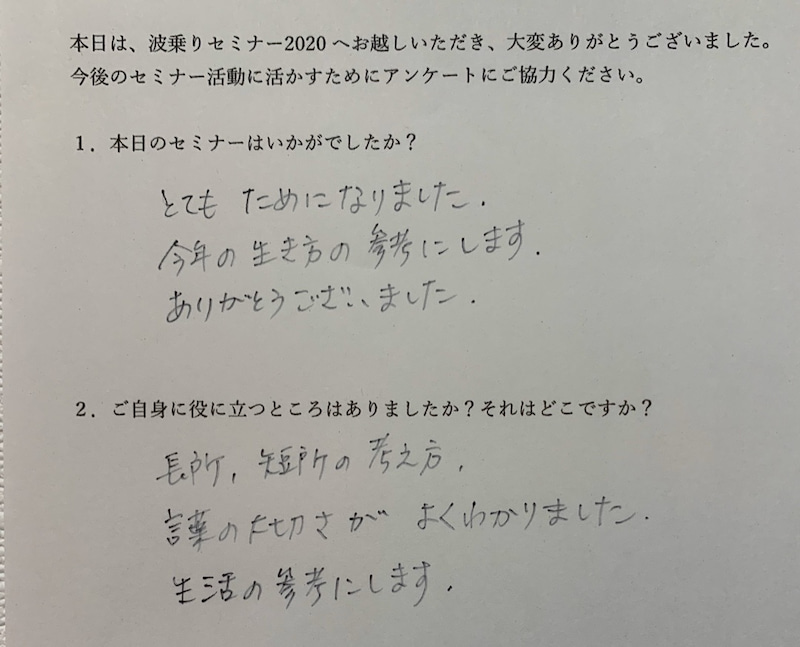 本日は、波乗りセミナー2020へお越しいただき、大変ありがとうございました。
今後のセミナー活動に活かすためにアンケートにご協力ください。
1．本日のセミナーはいかがでしたか？
とても ためになりました．
今年の生き方の参考にします．
ありがとうございました．
2．ご自身に役に立つところはありましたか？それはどこですか？
長所，短所の考え方，
言葉の大切さが よくわかりました．
生活の参考にします．